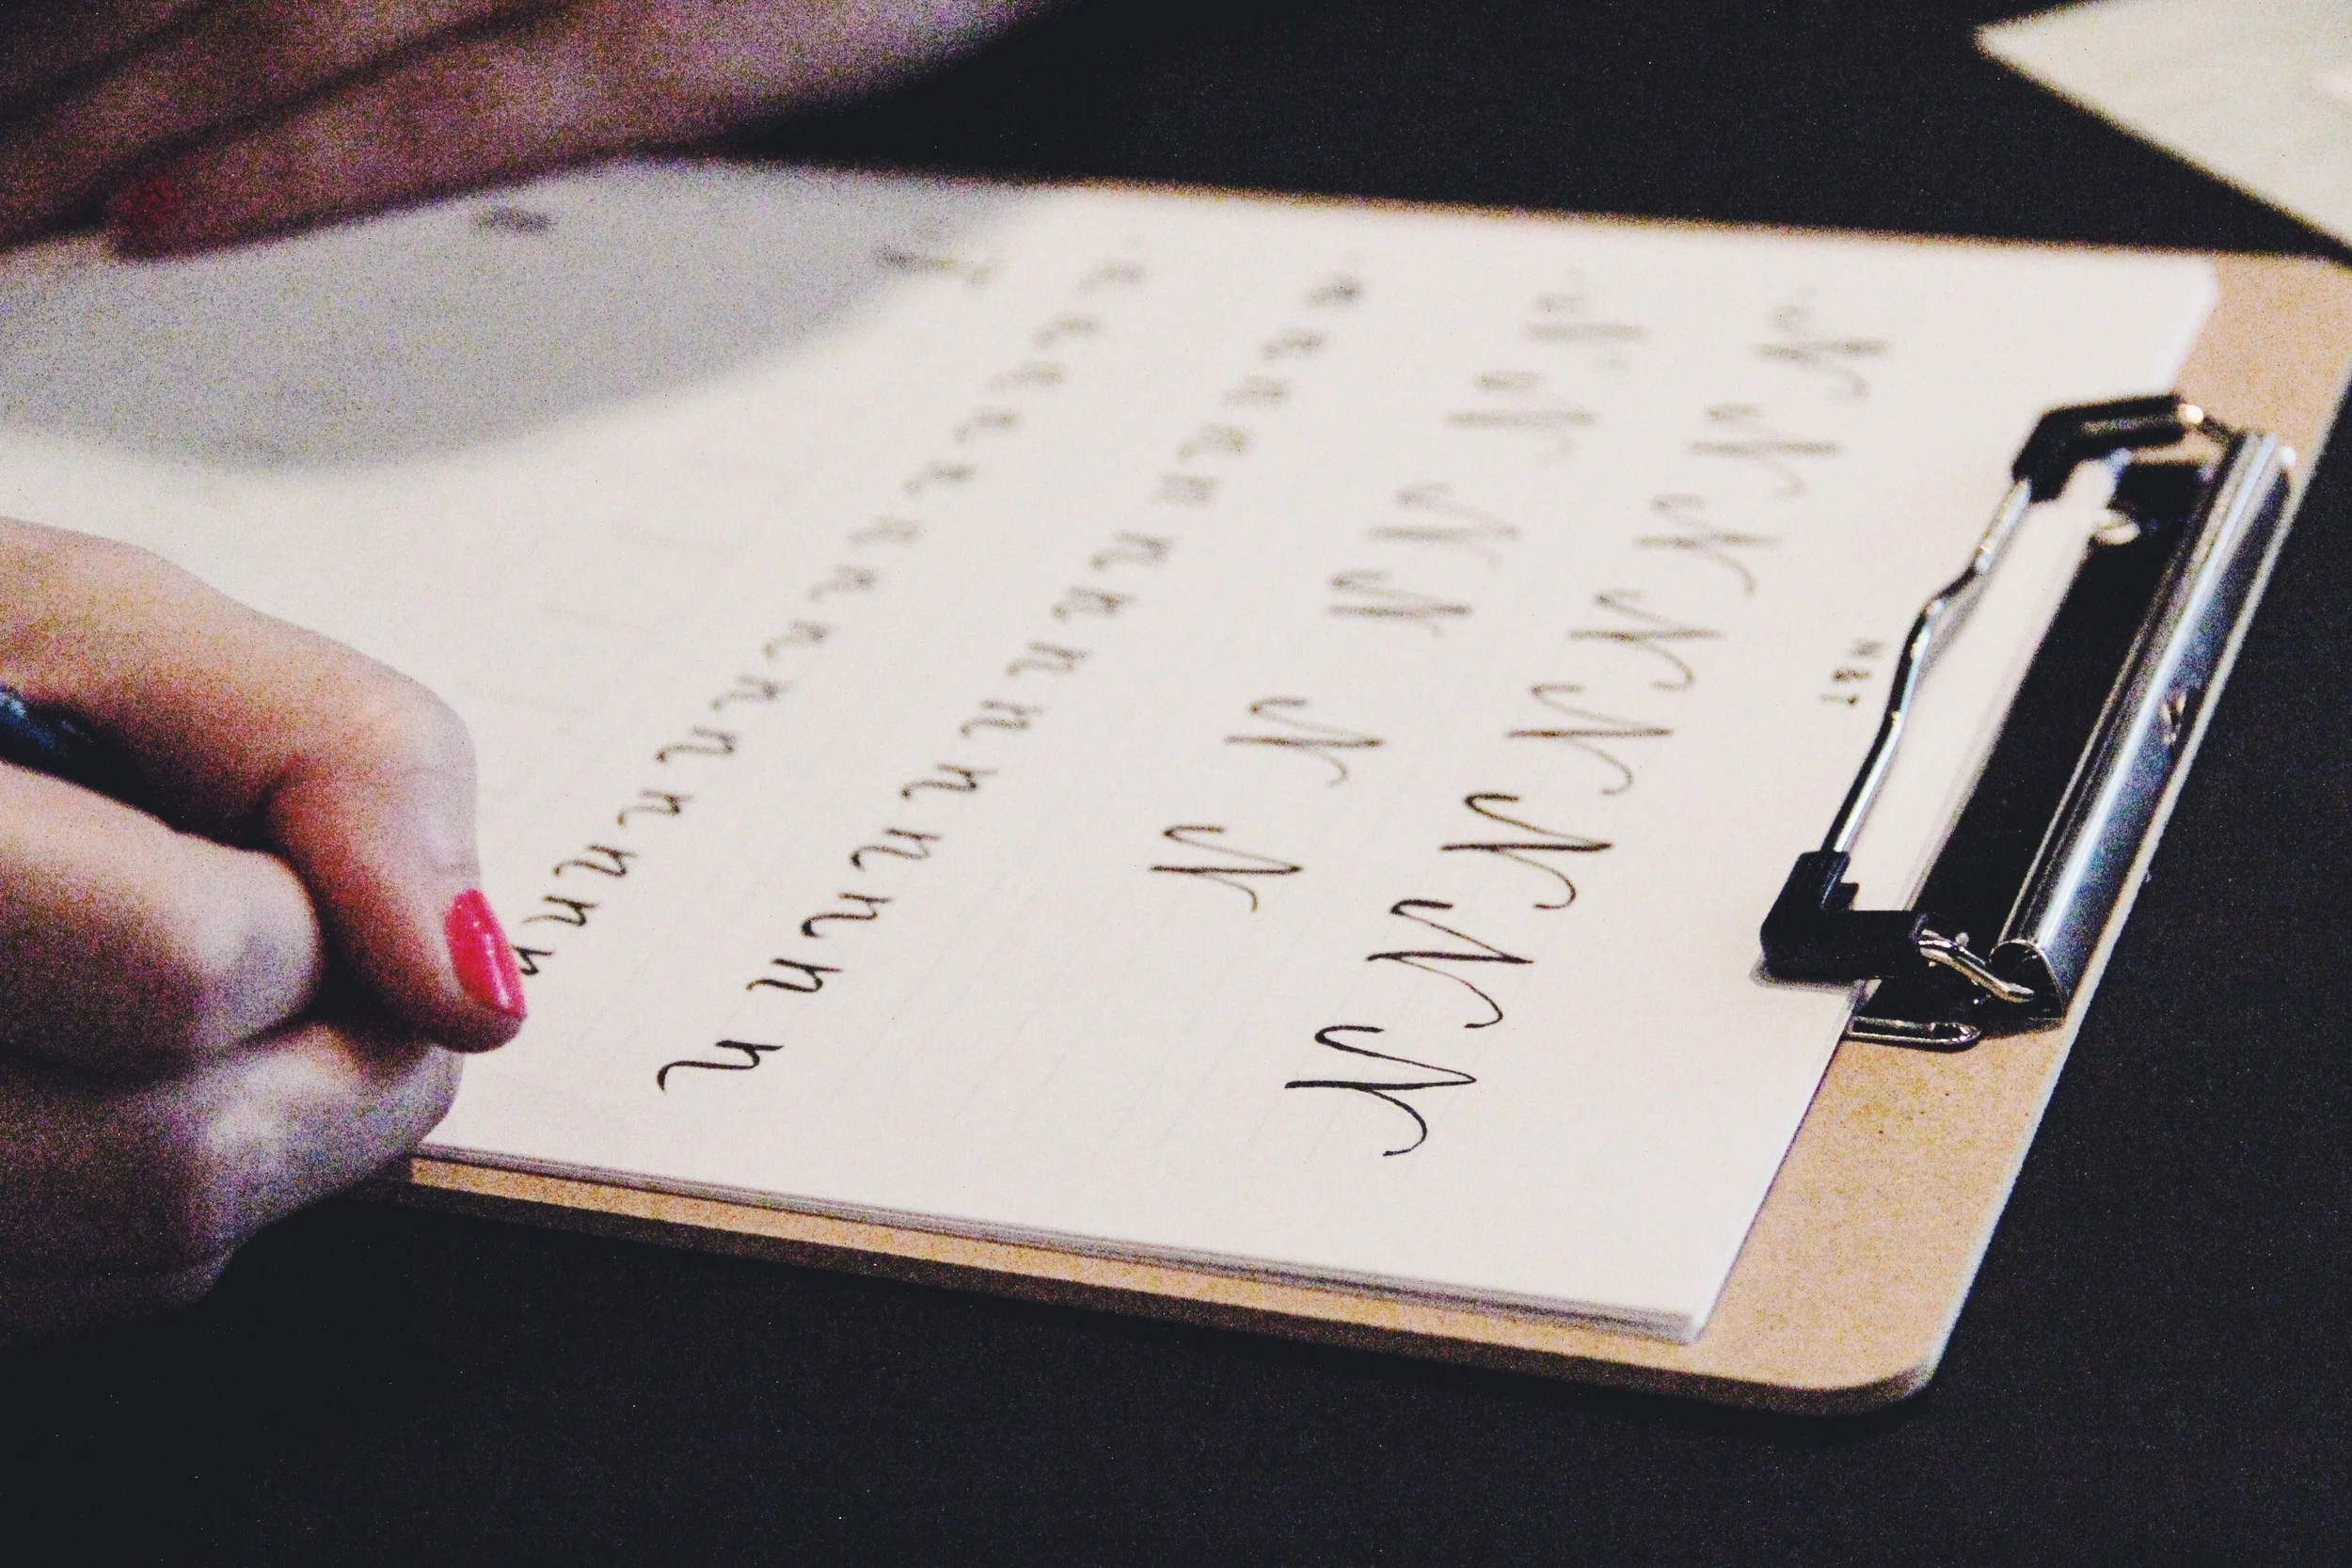 N&T
N N N N N N N N
N N N N N N
n n n n n n n n n n n n n n
n n n n n n n n n n n n n n